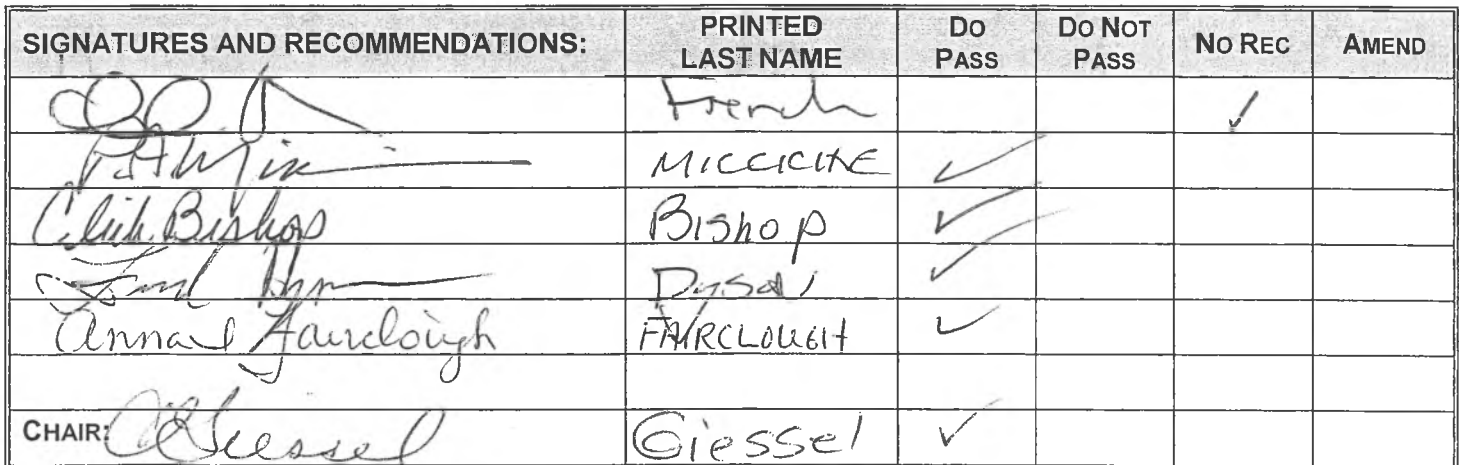 SIGNATURES AND RECOMMENDATIONS: PRINTED LAST NAME DO PASS DO NOT PASS NO REC AMEND
French ✓
MICCICHE ✓
Click Bishop Bishop ✓
✓
Anna Fairclough FAIRCLOUGH ✓
CHAIR: CGiessel Giessel ✓